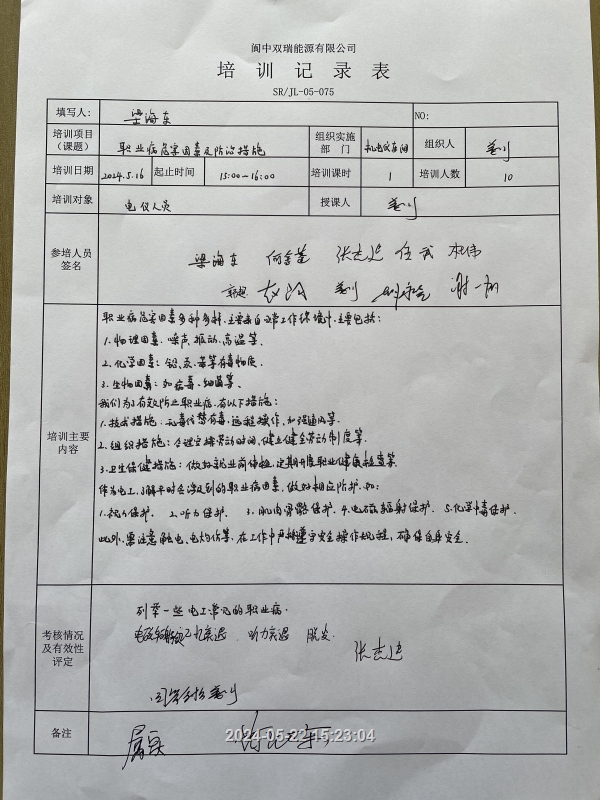 阆中双瑞能源有限公司
培训记录表
SR/JL-05-075
填写人： 梁海东 NO:
培训项目（课题） 职业病危害因素及防治措施 组织实施部门 机电仪车间 组织人
培训日期 2024.5.16 起止时间 15:00-16:00 培训课时 1 培训人数 10
培训对象 电仪人员 授课人
参培人员签名 梁海东 何金莲 张志廷 任武 杜伟
培训主要内容
职业病危害因素多种多样，主要来自文常工作环境中，主要包括：
1.物理因素：噪声、振动、高温等。
2.化学因素：铅、汞、苯等有毒物质。
3.生物因素：如病毒、细菌等。
我们为了有效防止职业病，有以下措施：
1.技术措施：无毒代替有毒，远程操作，加强通风等。
2.组织措施：合理安排劳动时间，健立健全劳动制度等。
3.卫生保健措施：做好就业前体检，定期开展职业健康检查等。
作为电工，了解平时会涉及到的职业病因素，做好相应防护，如：
1.视力保护. 2.听力保护. 3.肌肉骨骼保护. 4.电磁辐射保护. 5.化学中毒保护.
此外，需注意触电、电灼伤等，在工作中严格遵守安全操作规程，确保自身安全.
考核情况及有效性评定
列举一些电工常见的职业病.
听力衰退 脱发
备注
2024-05-22 15:23:04